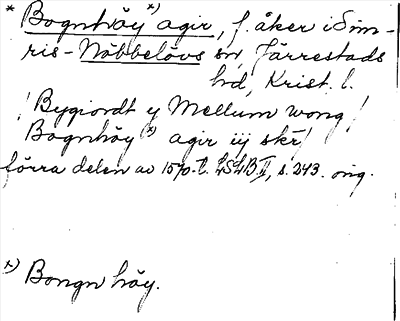 * Bognhöy x) agir, f. åker i Sim-
ris-Nöbbelövs sn, Järrestads
hd, Krist. l.
/Bygiordt y Mellum wong/
Bognhöy x) agir iij skr/
förra delen av 1570-t. LSLB II, s. 243. orig.
x) Bongn höy.